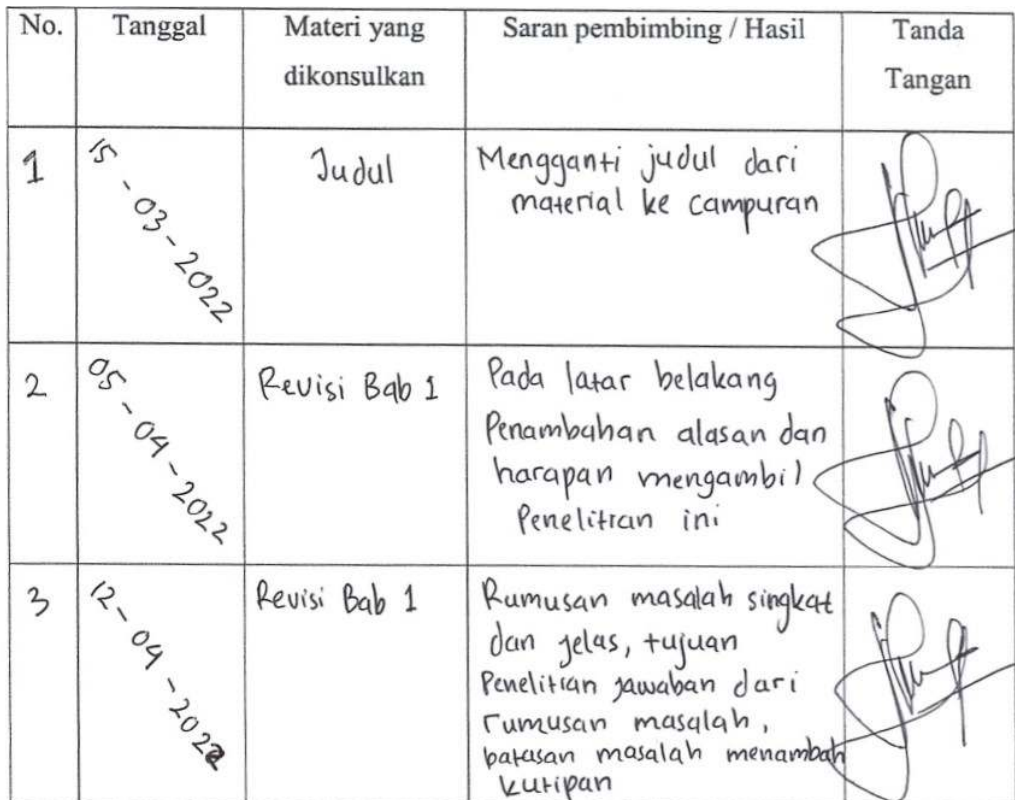 No. Tanggal Materi yang Saran pembimbing / Hasil Tanda
dikonsulkan Tangan
1 15-03-2022 Judul Mengganti judul dari
material ke campuran
2 05-04-2022 Revisi Bab 1 Pada latar belakang
Penambahan alasan dan
harapan mengambil
Penelitian ini
3 12-04-2022 Revisi Bab 1 Rumusan masalah singkat
dan jelas, tujuan
Penelitian jawaban dari
rumusan masalah,
batasan masalah menambah
kutipan